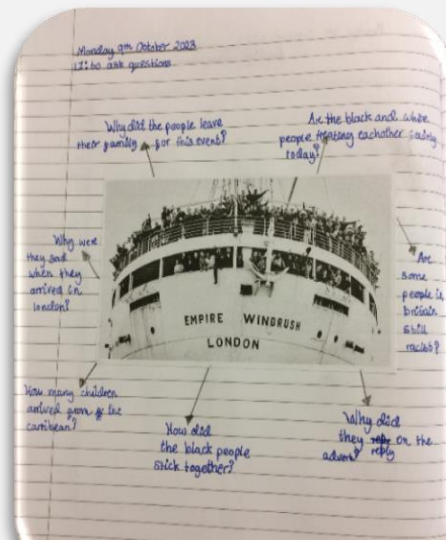 Monday 9th October 2023
LI: to ask questions
Why did the people leave
their family for this event?
Are the black and white
people treating eachother fairly
today?
Why were
they sad
when they
arrived in
london?
Are
some
people in
britain
still
racist?
EMPIRE WINDRUSH
LONDON
How many children
arrived from the
carribean?
How did
the black people
stick together?
Why did
they on the
advert reply